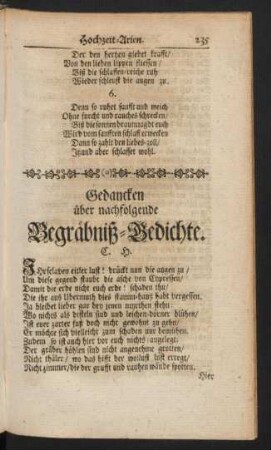 Hochzeit-Arien. 235
Der den hertzen giebet krafft/
Von den lieben lippen fliessen/
Biß die schlaffen-reiche ruh
Wieder schleust die augen zu.
6.
Denn so ruhet sanfft und weich
Ohne furcht und rauches schrecken/
Biß die sonne braut euch
Wird vom sanfften schlaff erwecken
Dann so zahlt den liebes-zoll/
Itzund aber schlaffet wohl.
Gedancken
über nachfolgende
Begräbniß-Gedichte.
C. H.
IHr sclaven eitler lust! drückt nur die augen zu/
Um diese gegend staubt die asche von Cypressen/
Damit die erde nicht euch erde! schaden thu/
Die ihr aus übermuth dies stamm-haus habt vergessen.
Ja bleibet lieber gar bey jenen myrthen stehn/
Wo nichts als disteln sind und leichen-dörner blühen/
Ist eure zarter fuß doch nicht gewohnt zu gehn/
Er möchte sich vielleicht zum schaden nur bemühen.
Zudem so ist auch hier vor euch nichts angelegt/
Der gräber höhlen sind nicht angenehme grotten/
Nicht thäler/ wo das hifft der weiltust lust erregt/
Nicht zimmer/ die der grufft und rauhen wände spotten.
Hier